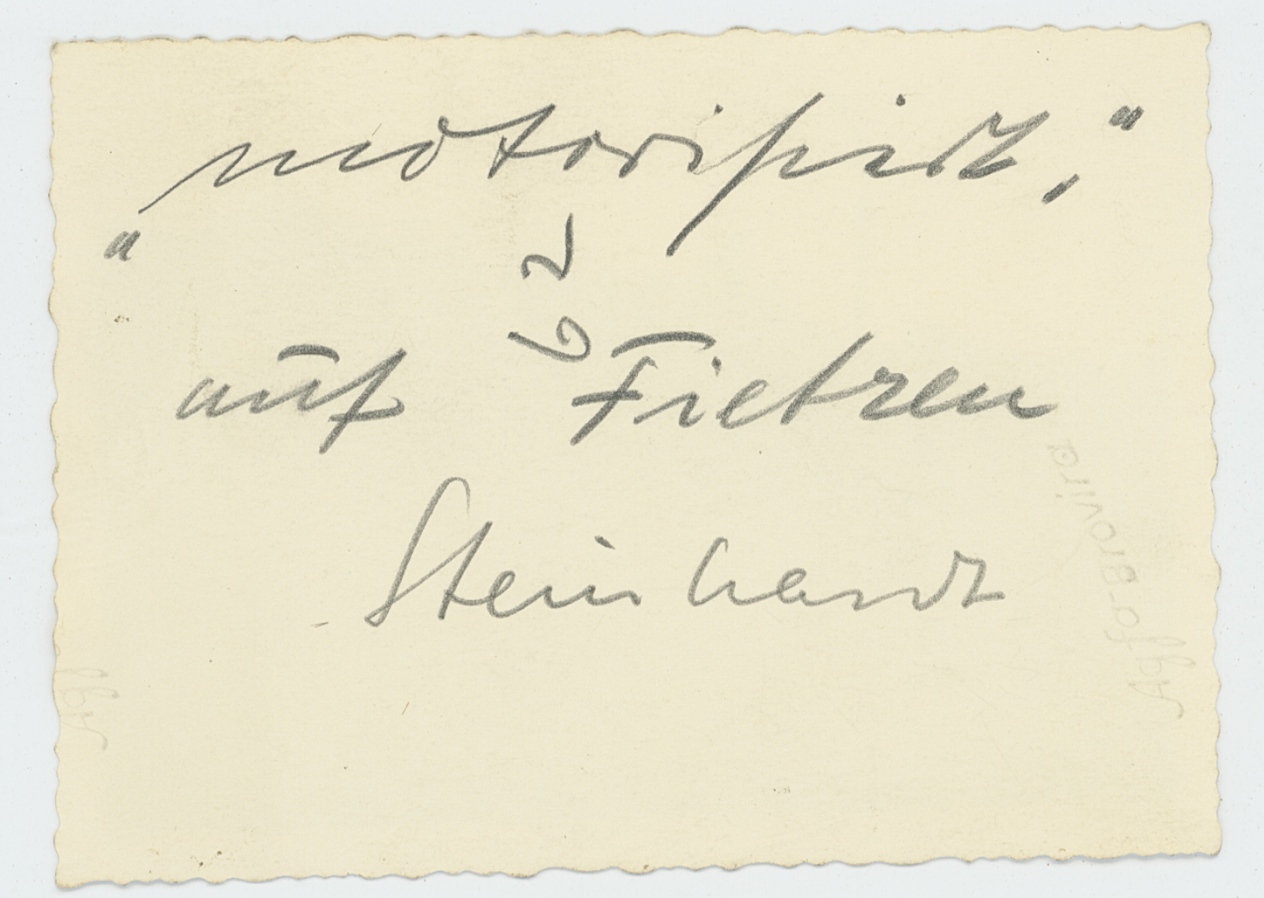 „motorisiert,“
auf Fietzen
Steinhardt
Agfa-Brovira
Agf